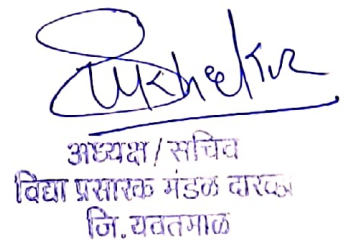 अध्यक्ष/सचिव
विद्या प्रसारक मंडळ दारव्हा
जि. यवतमाळ